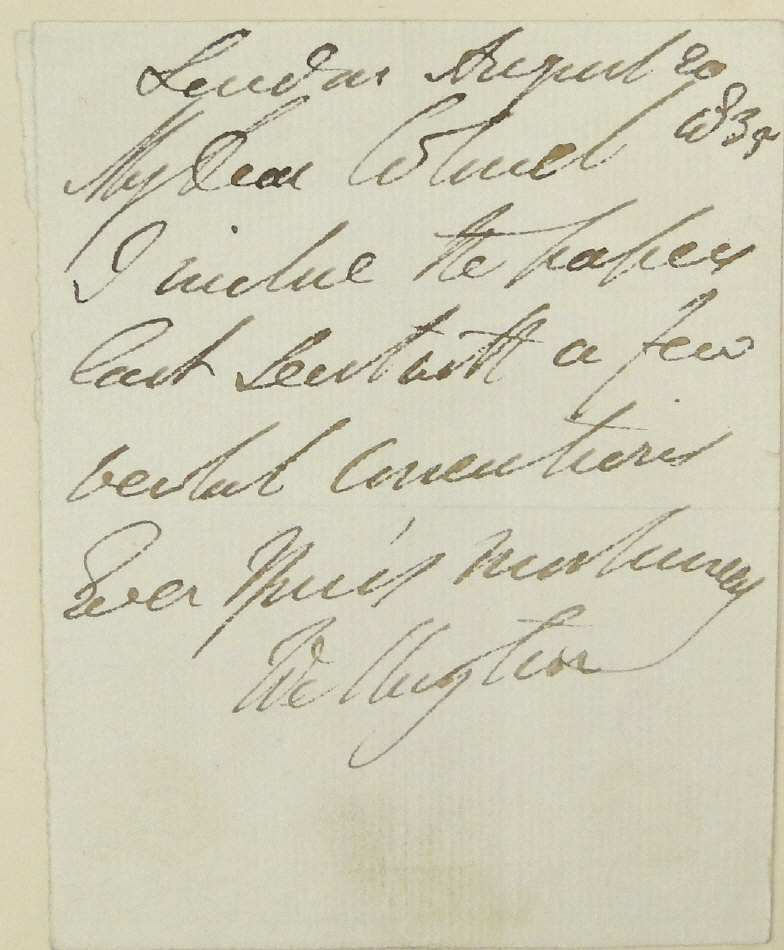 London August 20
1838
My dear Colonel
I inclose the papers
last sent with a few
verbal corrections
Ever Yours most sincerely
Wellington